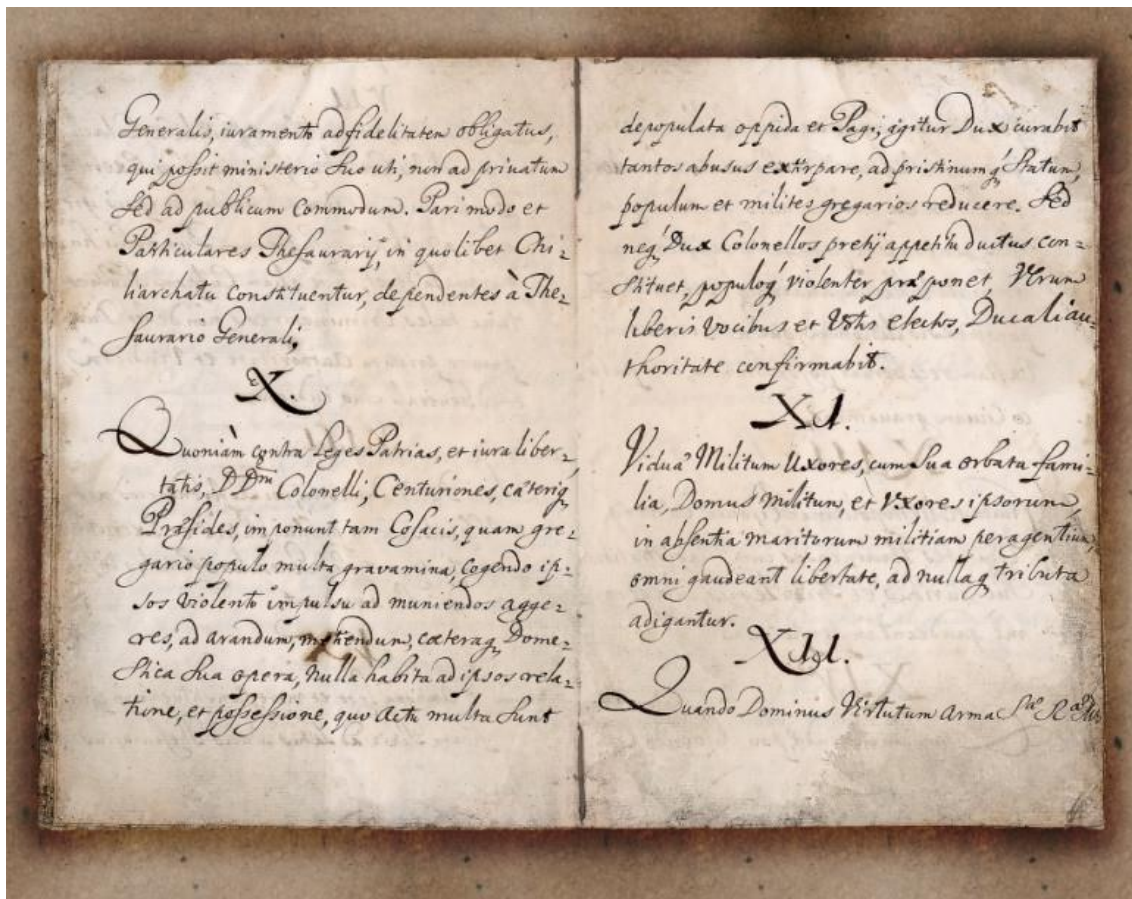 Generalis, iuramento ad fidelitatem obligatus,
qui possit ministerio suo uti, non ad privatum
sed ad publicum commodum. Pari modo et
Particulares Thesaurarij, in quolibet Chi=
liarchatu constituentur, dependentes à The=
saurario Generali.
X.
Quoniàm contra Leges Patrias, et iura liber=
tatis, D Dni Colonelli, Centuriones, caeteriq
Praesides, imponunt tam Cosacis, quam gre=
gario populo multa gravamina, cogendo ip=
sos violento impulsu ad muniendos agge=
res, ad arandum, metiendum, caeteraq Dome=
stica sua opera, nulla habita ad ipsos rela=
tione, et possessione, quo actu multa sunt
depopulata oppida et Pagi; igitur Dux curabit
tantos abusus extirpare, ad pristinumq statum,
populum et milites gregarios reducere. Sed
neq Dux Colonellos pretij appetitu ductus con=
stituet, populoq violenter praeponet, Verum
liberis vocibus et votis electos, Ducali au=
thoritate confirmabit.
XI.
Viduae Militum Uxores, cum sua orbata fami=
lia, Domus Militum, et Uxores ipsorum,
in absentia maritorum militiam peragentium,
omni gaudeant libertate, ad nullaq tributa
adigantur.
XII.
Quando Dominus Virtutum arma